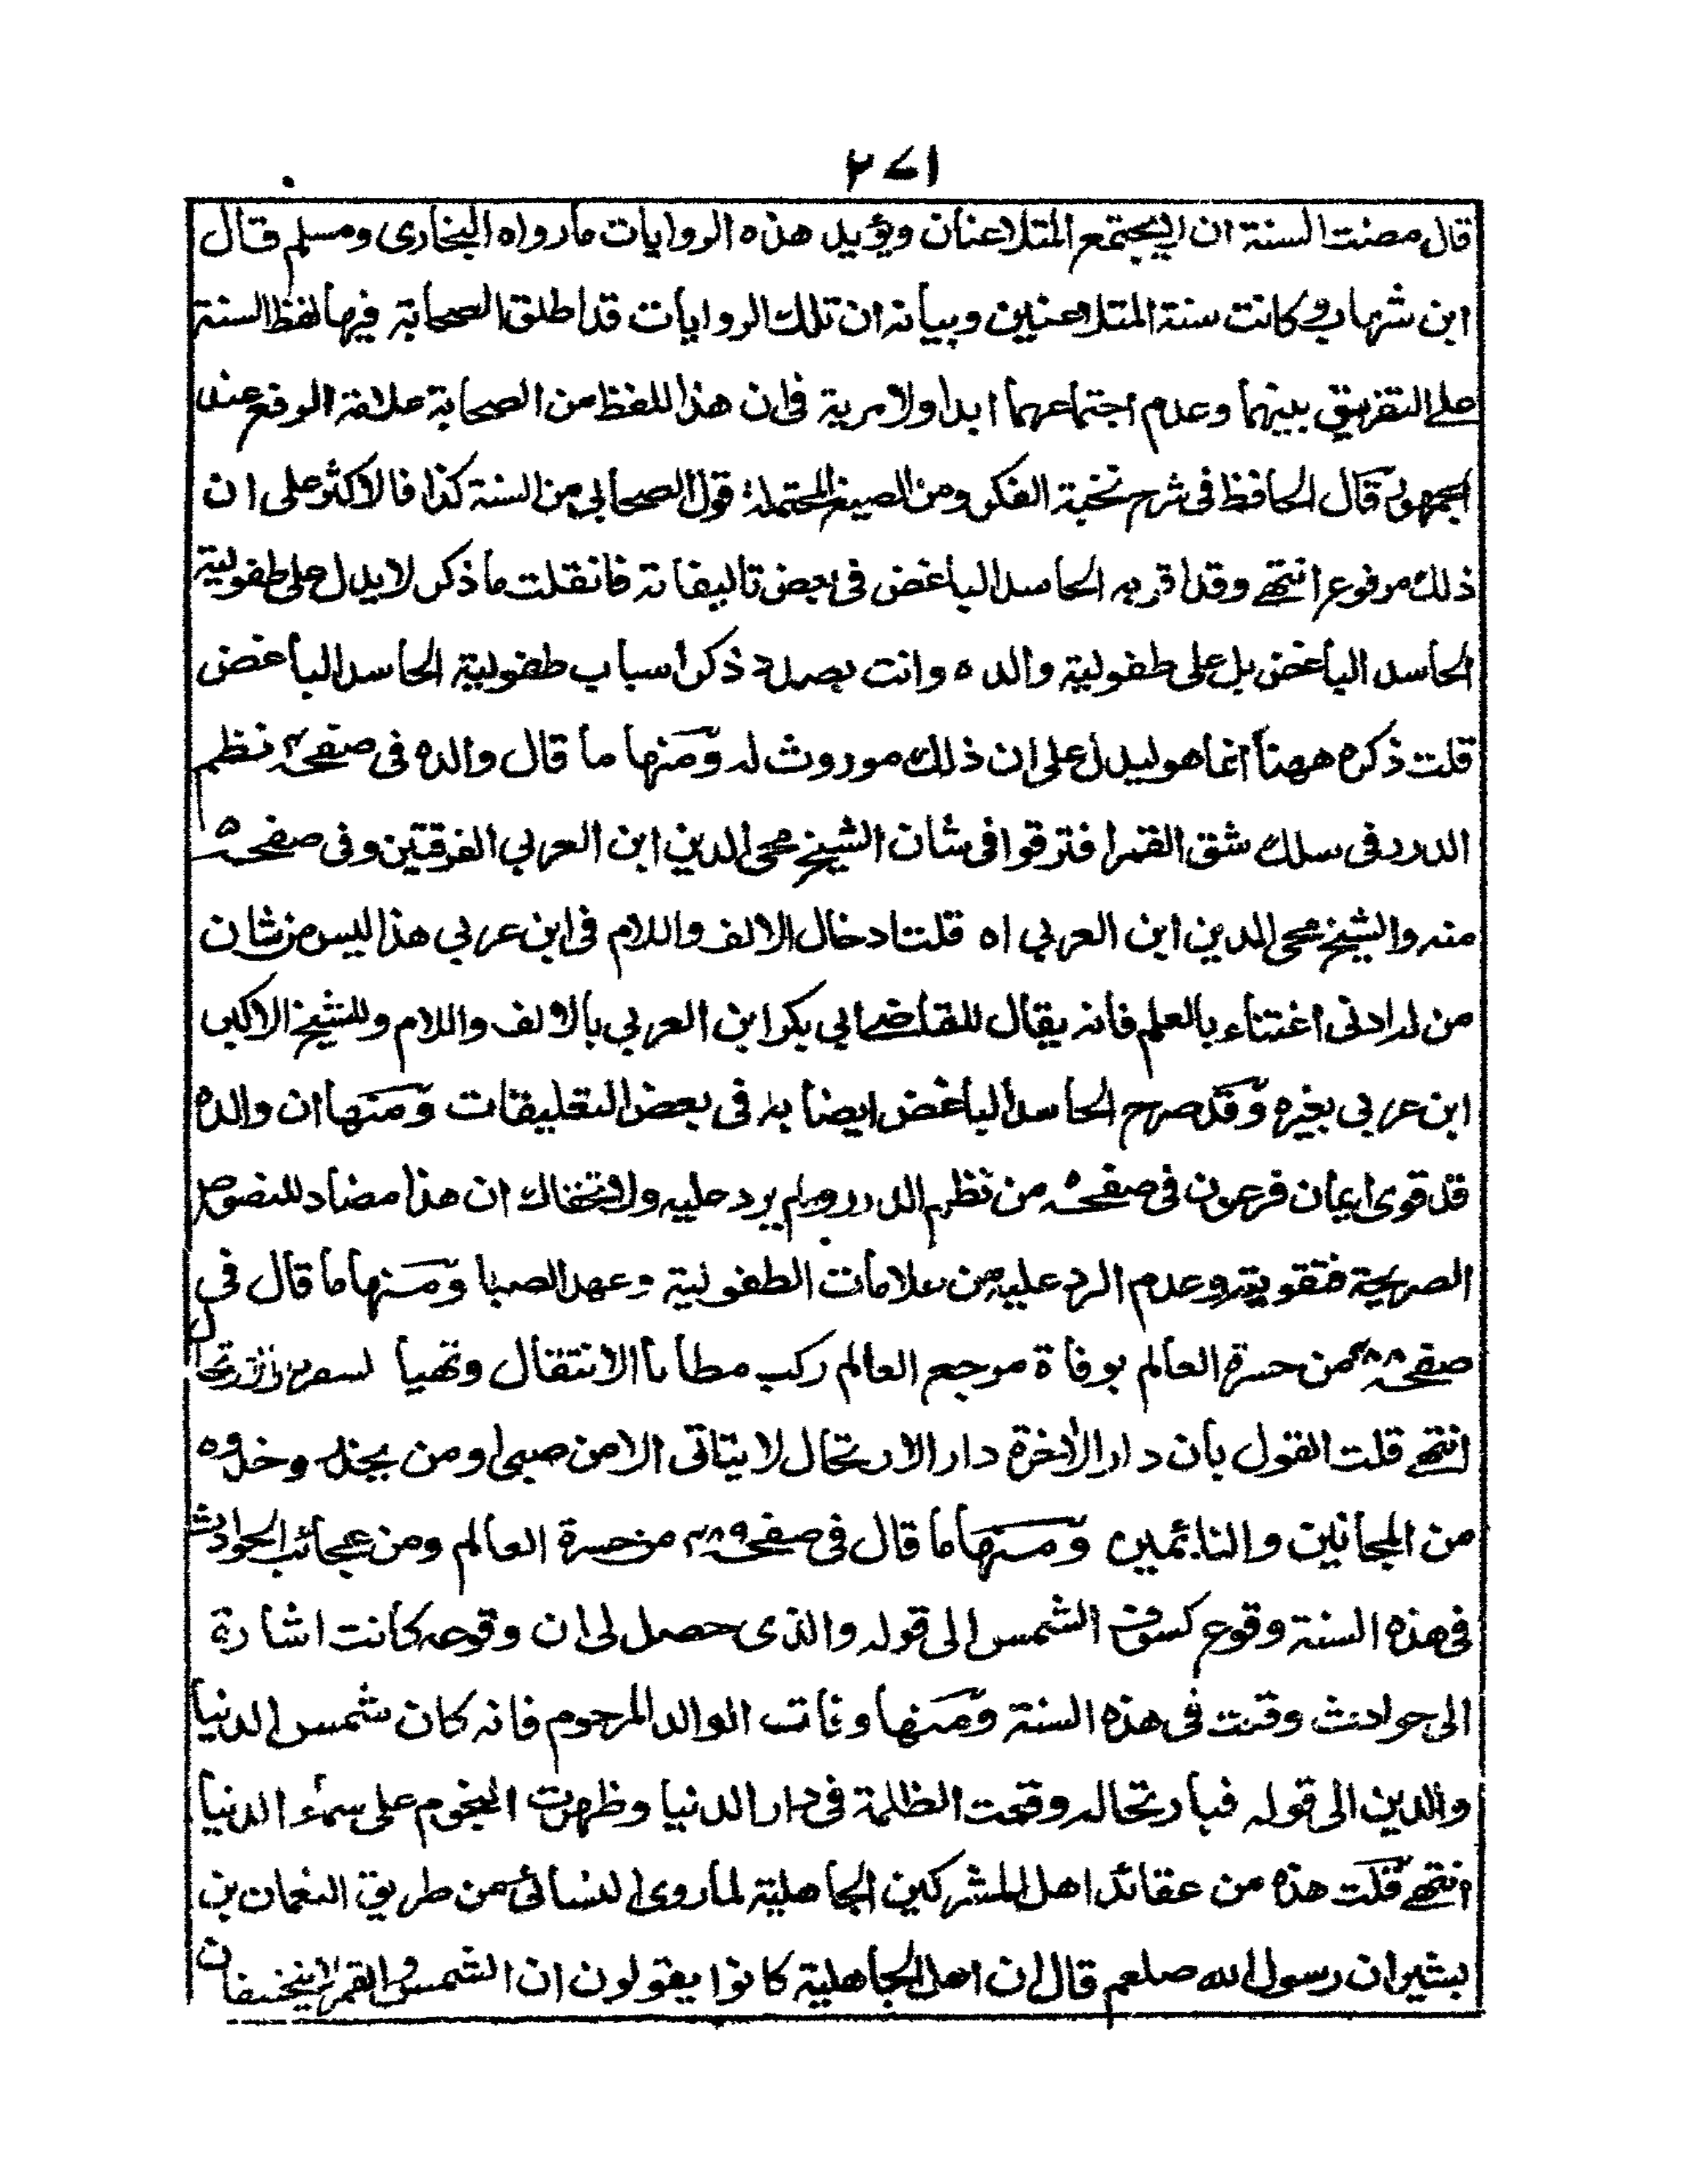 ٢٧١
قال مضت السنة ان لا يجتمع المتلاعنان ويؤيد هذه الروايات ما رواه البخاري ومسلم قال
ابن شهاب وكانت سنة المتلاعنين وبيانه ان تلك الروايات قد اطلق الصحابة فيها لفظ السنة
على التفريق بينهما وعدم اجتماعهما ابدا ولا مرية في ان هذا اللفظ من الصحابة علامة الرفع عند
الجمهور قال الحافظ في شرح نخبة الفكر ومن الصيغ المحتملة قول الصحابي من السنة كذا فالاكثر على ان
ذلك مرفوع انتهى وقد اقر به الحاسد الباغض في بعض تاليفاته فان قلت ما ذكر لا يدل على طفولية
الحاسد الباغض بل على طفولية والده وانت بصدد ذكر اسباب طفولية الحاسد الباغض
قلت ذكره ههنا انما هو ليدل على ان ذلك موروث له ومنها ما قال والده في صفحة نظم
الدرر في سلك شق القمر افترقوا في شان الشيخ محي الدين ابن العربي الفرقتين وفي صفحة
منه والشيخ محي الدين ابن العربي اه قلت ادخال الالف واللام في ابن عربي هذا ليس من شان
من له ادنى اغتناء بالعلم فانه يقال للقاضي ابي بكر ابن العربي بالالف واللام وللشيخ الاكبر
ابن عربي بغيره وقد صرح الحاسد الباغض ايضا به في بعض التعليقات ومنها ان والده
قد قوى ايمان فرعون في صفحة من نظم الدرر ولم يرد عليه ولا يخفاك ان هذا مضاد للنصوص
الصريحة فتقويته وعدم الرد عليه من علامات الطفولية وعهد الصبا ومنها ما قال في
صفحة من حسرة العالم بوفاة مرجع العالم ركب مطايا الانتقال وتهيأ لسفر دار الارتحال
انتهى قلت القول بان دار الآخرة دار الارتحال لا يتاتى الا من صبي او من يحذو حذوه
من المجانين والنائمين ومنها ما قال في صفحة من حسرة العالم ومن عجائب الحوادث
في هذه السنة وقوع كسوف الشمس الى قوله والذي حصل لي ان وقوعه كانت اشارة
الى حوادث وقعت في هذه السنة ومنها وفات الوالد المرحوم فانه كان شمس الدنيا
والدين الى قوله فبارتحاله وقعت الظلمة في دار الدنيا وظهرت النجوم على سماء الدنيا
انتهى قلت هذه من عقائد اهل المشركين الجاهلية لما روى النسائي من طريق النعمان بن
بشير ان رسول الله صلعم قال ان اهل الجاهلية كانوا يقولون ان الشمس والقمر لا ينخسفان